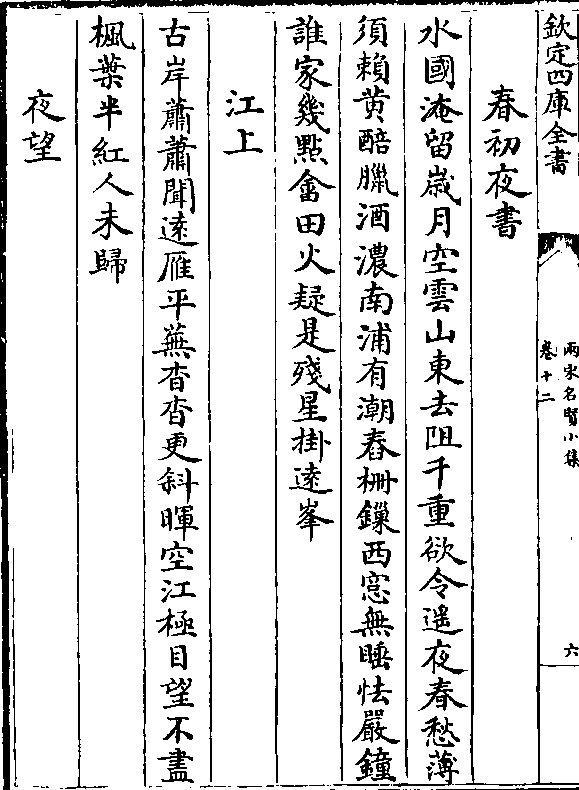 欽定四庫全書
兩宋名賢小集
卷十二
六
春初夜書
水國淹留歲月空雲山東去阻千重欲令遥夜春愁薄
須賴黄醅臘酒濃南浦有潮舂柵鏁西窓無睡怯嚴鐘
誰家幾點畬田火疑是殘星掛逺峯
江上
古岸蕭蕭聞逺雁平蕪杳杳更斜暉空江極目望不盡
楓葉半紅人未歸
夜望